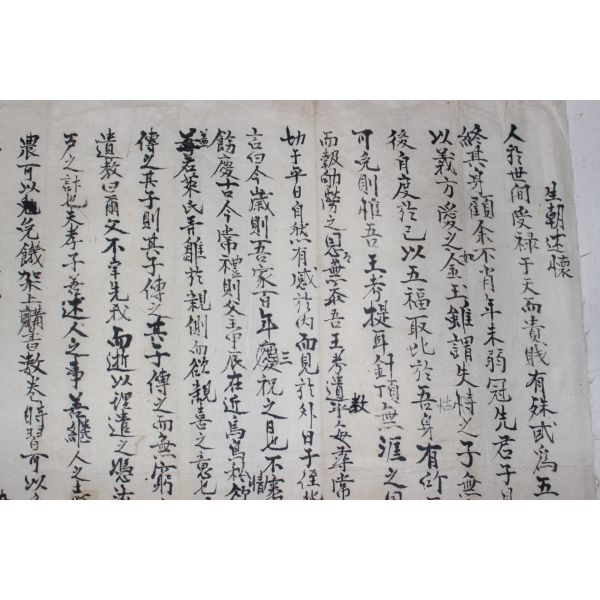 生朝述懷
人於世間受祿于天而貴賤有殊或爲五
終其算顧余不肖年未弱冠先君子見
以義方愛之如金玉雖謂失恃之子無
後自度於已以五福取比於吾身有所
可免則惟吾王考提耳針頂無涯之
而報劬勞之恩無 吾王考遺 每尋常
切于平日自然有感於內而見於外日子侄
言曰今歲則吾家百年三慶祝之日也不
餙慶古今常禮則父主甲辰在近焉寫私
盖若萊氏弄雛於親側而欲親喜之意也
傳之其子則其子傳之其子傳之而無窮
遺敎曰爾父不幸先我而逝以理遣之
之計也夫孝子善述人之事善繼人之志
農可以免饑架上講書數卷時習可以